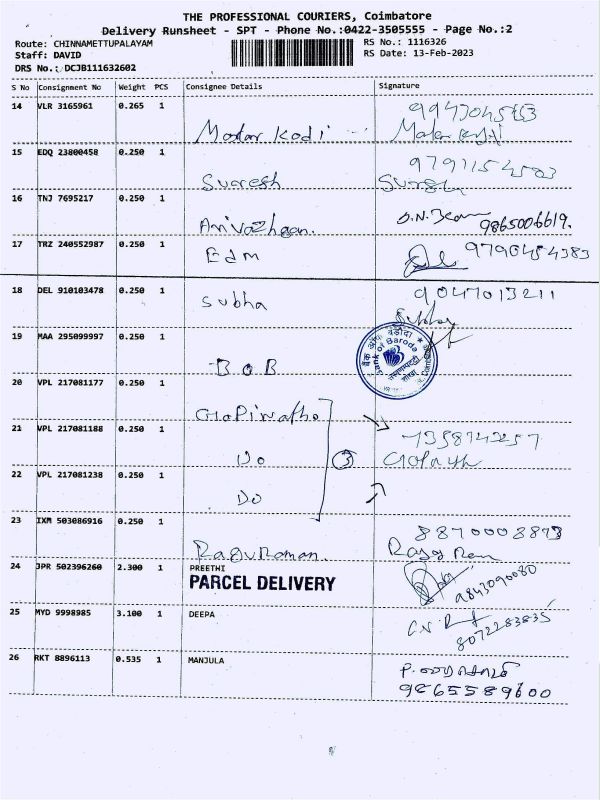 THE PROFESSIONAL COURIERS, Coimbatore
Delivery Runsheet - SPT - Phone No.:0422-3505555 - Page No.:2
Route: CHINNAMETTUPALAYAM
RS No.: 1116326
Staff: DAVID
RS Date: 13-Feb-2023
DRS No.: DCJB111632602
S No Consignment No Weight PCS Consignee Details Signature
14 VLR 3165961 0.265 1
Malar Kodi
15 EDQ 23800458 0.250 1
Suresh
16 TNJ 7695217 0.250 1
Arivazhgan. 9865006619.
17 TRZ 240552987 0.250 1 Edm 9790454383
18 DEL 910103478 0.250 1 Subha 9047013211
19 MAA 295099997 0.250 1
BOB
Bank of Baroda
20 VPL 217081177 0.250 1
Gopinatho
21 VPL 217081188 0.250 1
Do 3
22 VPL 217081238 0.250 1
Do
23 IXM 503086916 0.250 1
Raguraman
24 JPR 502396260 2.300 1 PREETHI
PARCEL DELIVERY
25 MYD 9998985 3.100 1 DEEPA
8072283835
26 RKT 8896113 0.535 1 MANJULA
9865589600